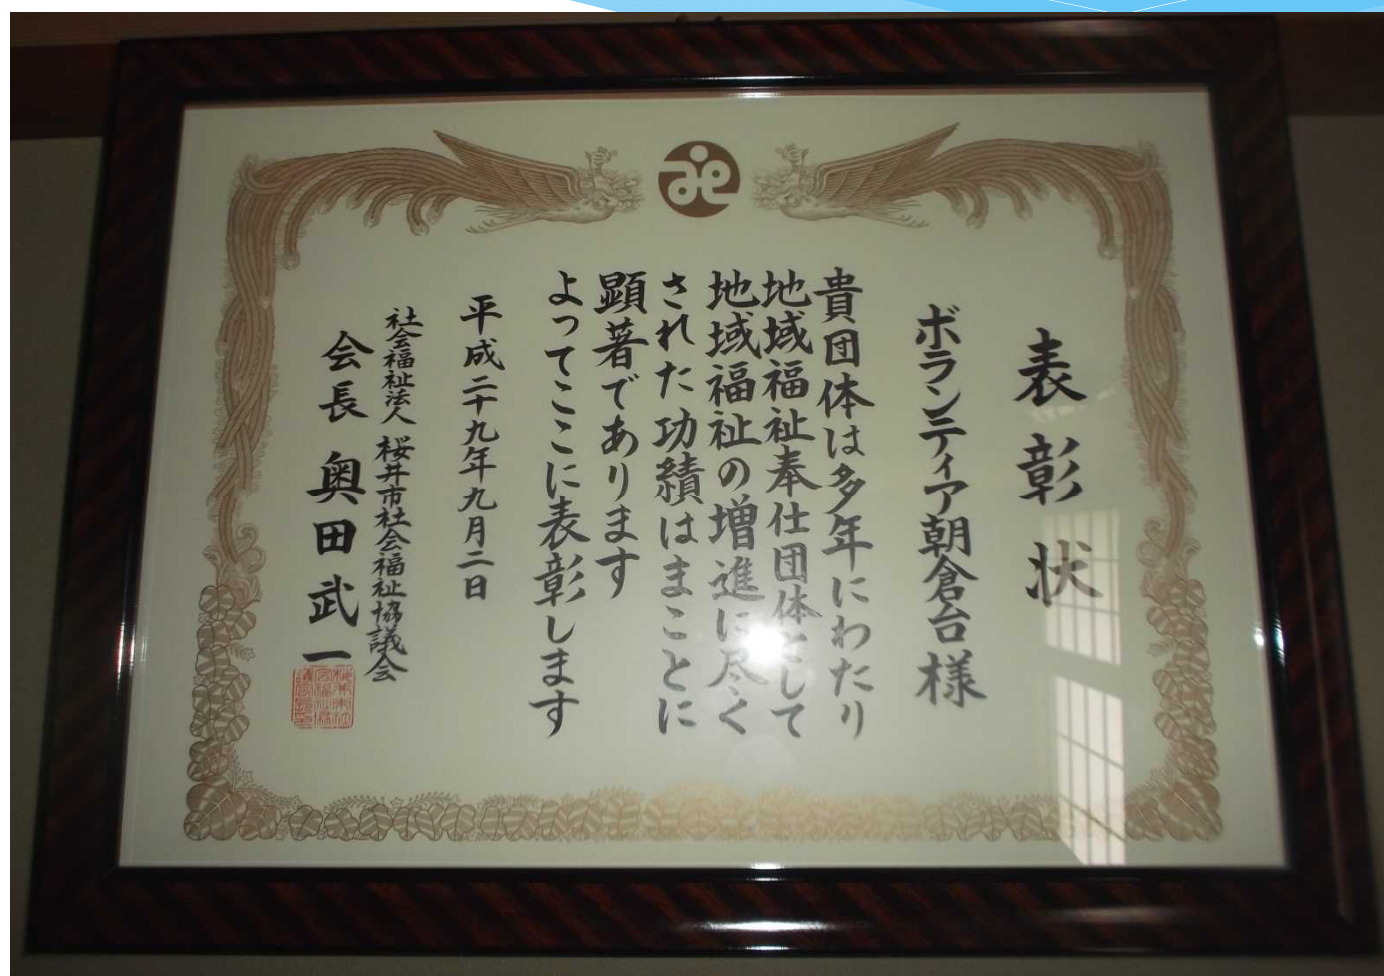 表彰状
ボランティア朝倉台様
貴団体は多年にわたり
地域福祉奉仕団体として
地域福祉の増進に尽く
された功績はまことに
顕著であります
よってここに表彰します
平成二十九年九月二日
社会福祉法人 桜井市社会福祉協議会
会長 奥田武一